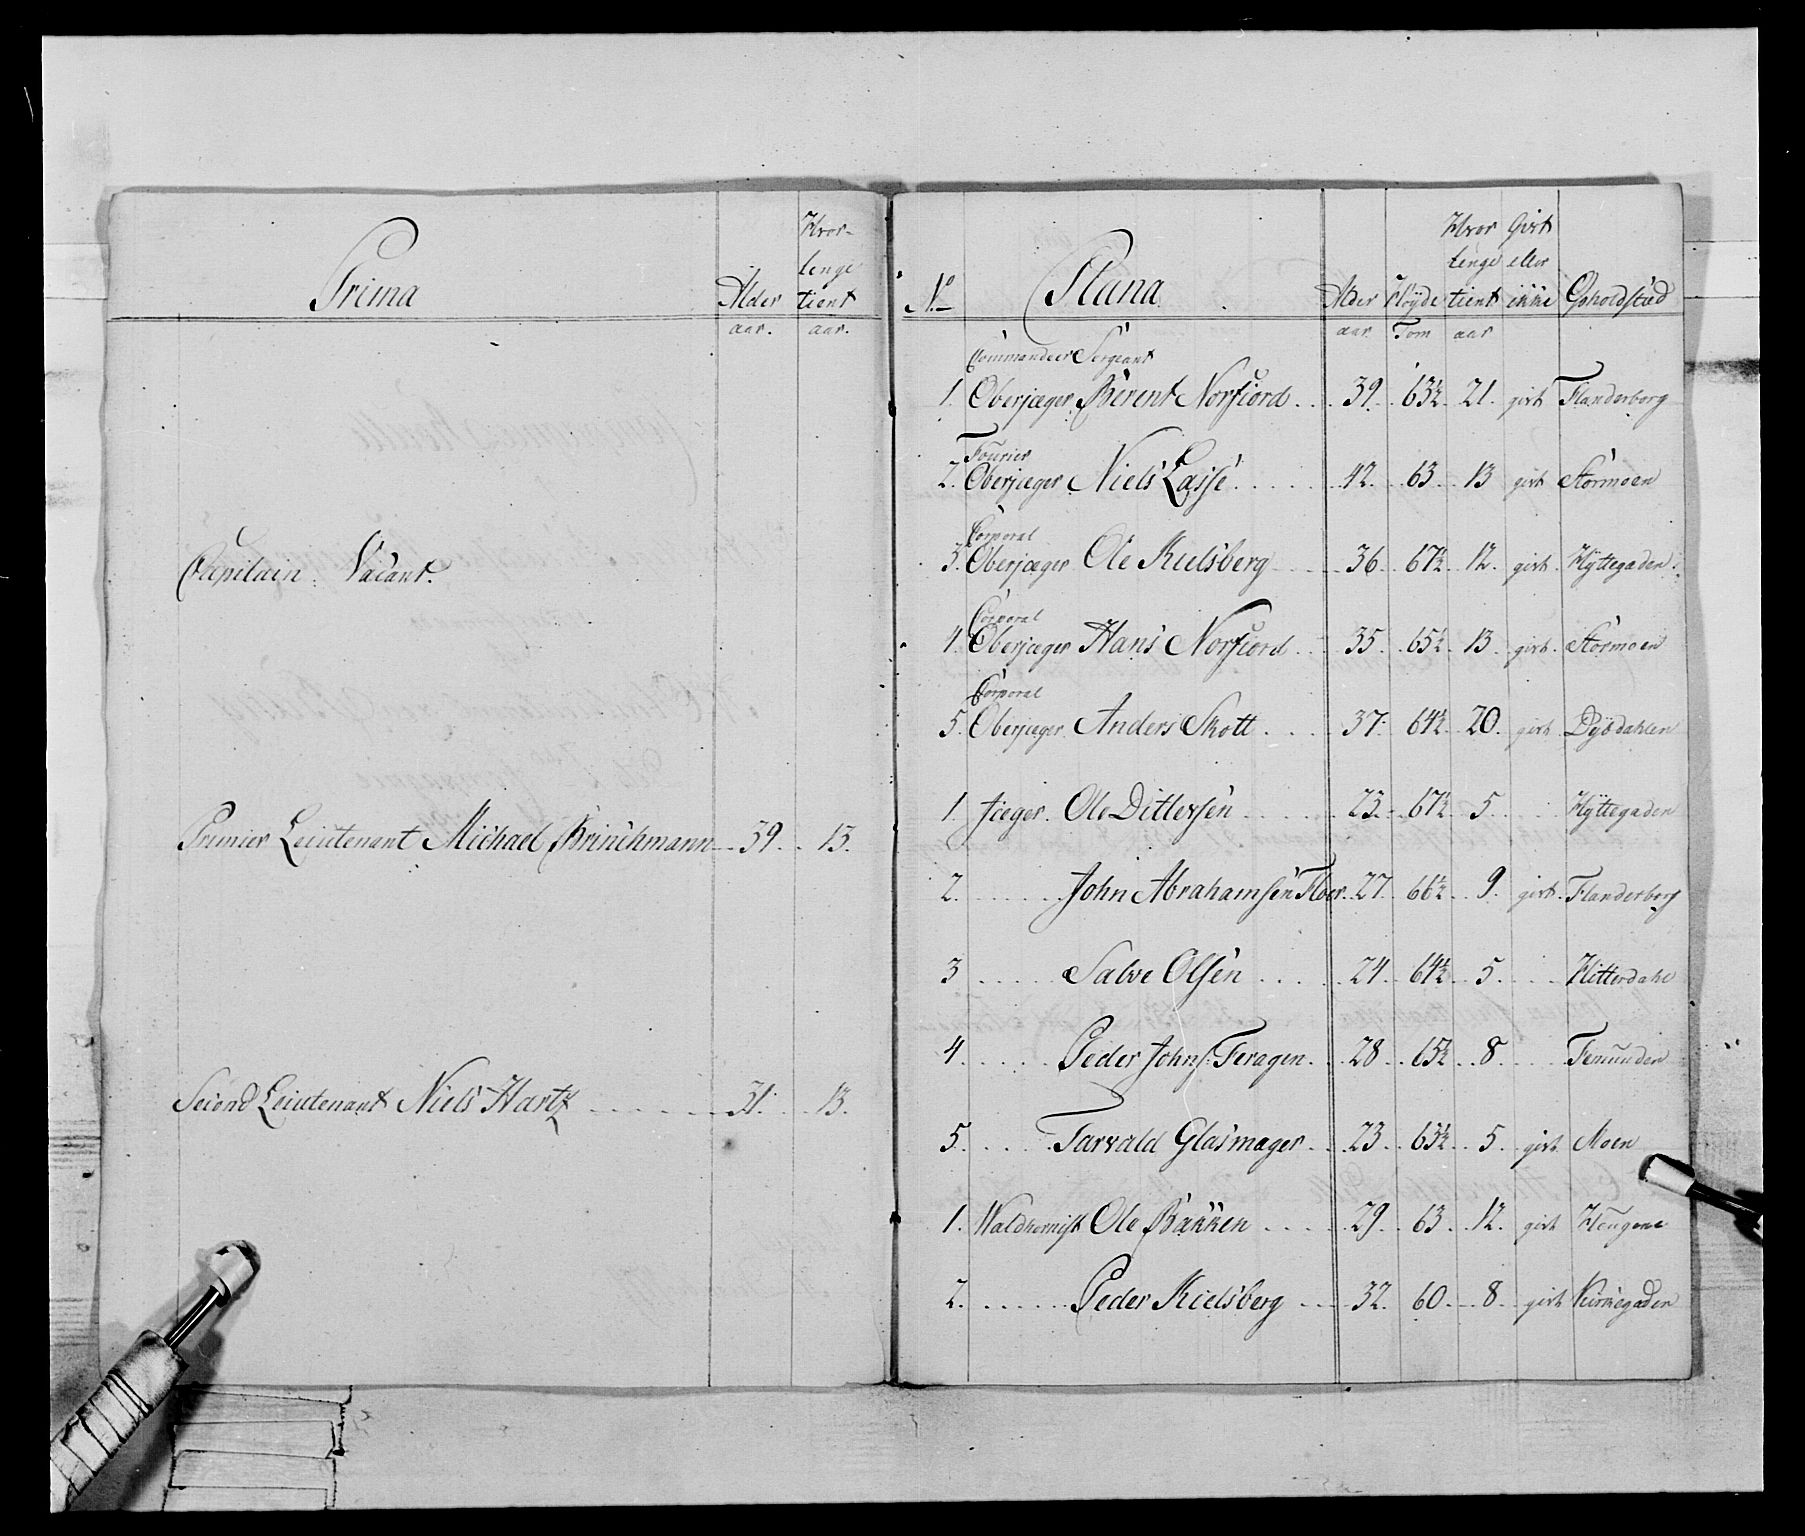 Prima Alder Hvor-
lenge
tient
aar. aar.
Capitain Vacant.
Premier Lieutenant Michael Brinchmann 39. 13.
Second Lieutenant Niels Hartz 31. 13.
No Plana Alder Høyde Hvor
Lenge
tient Givt
eller
ikke Opholdstæd
aar Tom aar
Commandeer Sergeant
1. Oberjæger Berent Norfiord 39. 63½ 21. givt Flanderborg
Fourier
2. Oberjæger Niels Lasse 42. 63 13 givt Stormoen
Corporal
3. Oberjæger Ole Kielsberg 36. 67½ 12. givt. Hyttegaden
Corporal
4. Oberjæger Hans Norfiord 35. 65½ 13. givt. Stormoen
Corporal
5. Oberjæger Anders Skott 37. 64½ 20. givt Dybdahlen
1. Jæger. Ole Ditlevsen 23. 67½ 5. Hyttegaden
2. John Abrahamsen Floer. 27. 66½ 9. givt. Flanderborg
3 Salve Olsen 24. 64½ 5. Hitterdahl
4. Peder Johns: Feragen. 28 65½ 8. Femunden
5. Tarvald Glasmager 23. 63½ 5. givt. Moen
1. Waldhornist Ole Bakken 29. 63. 12. givt Hougene
2. Peder Kielsberg 32. 60. 8. givt Kirkegaden